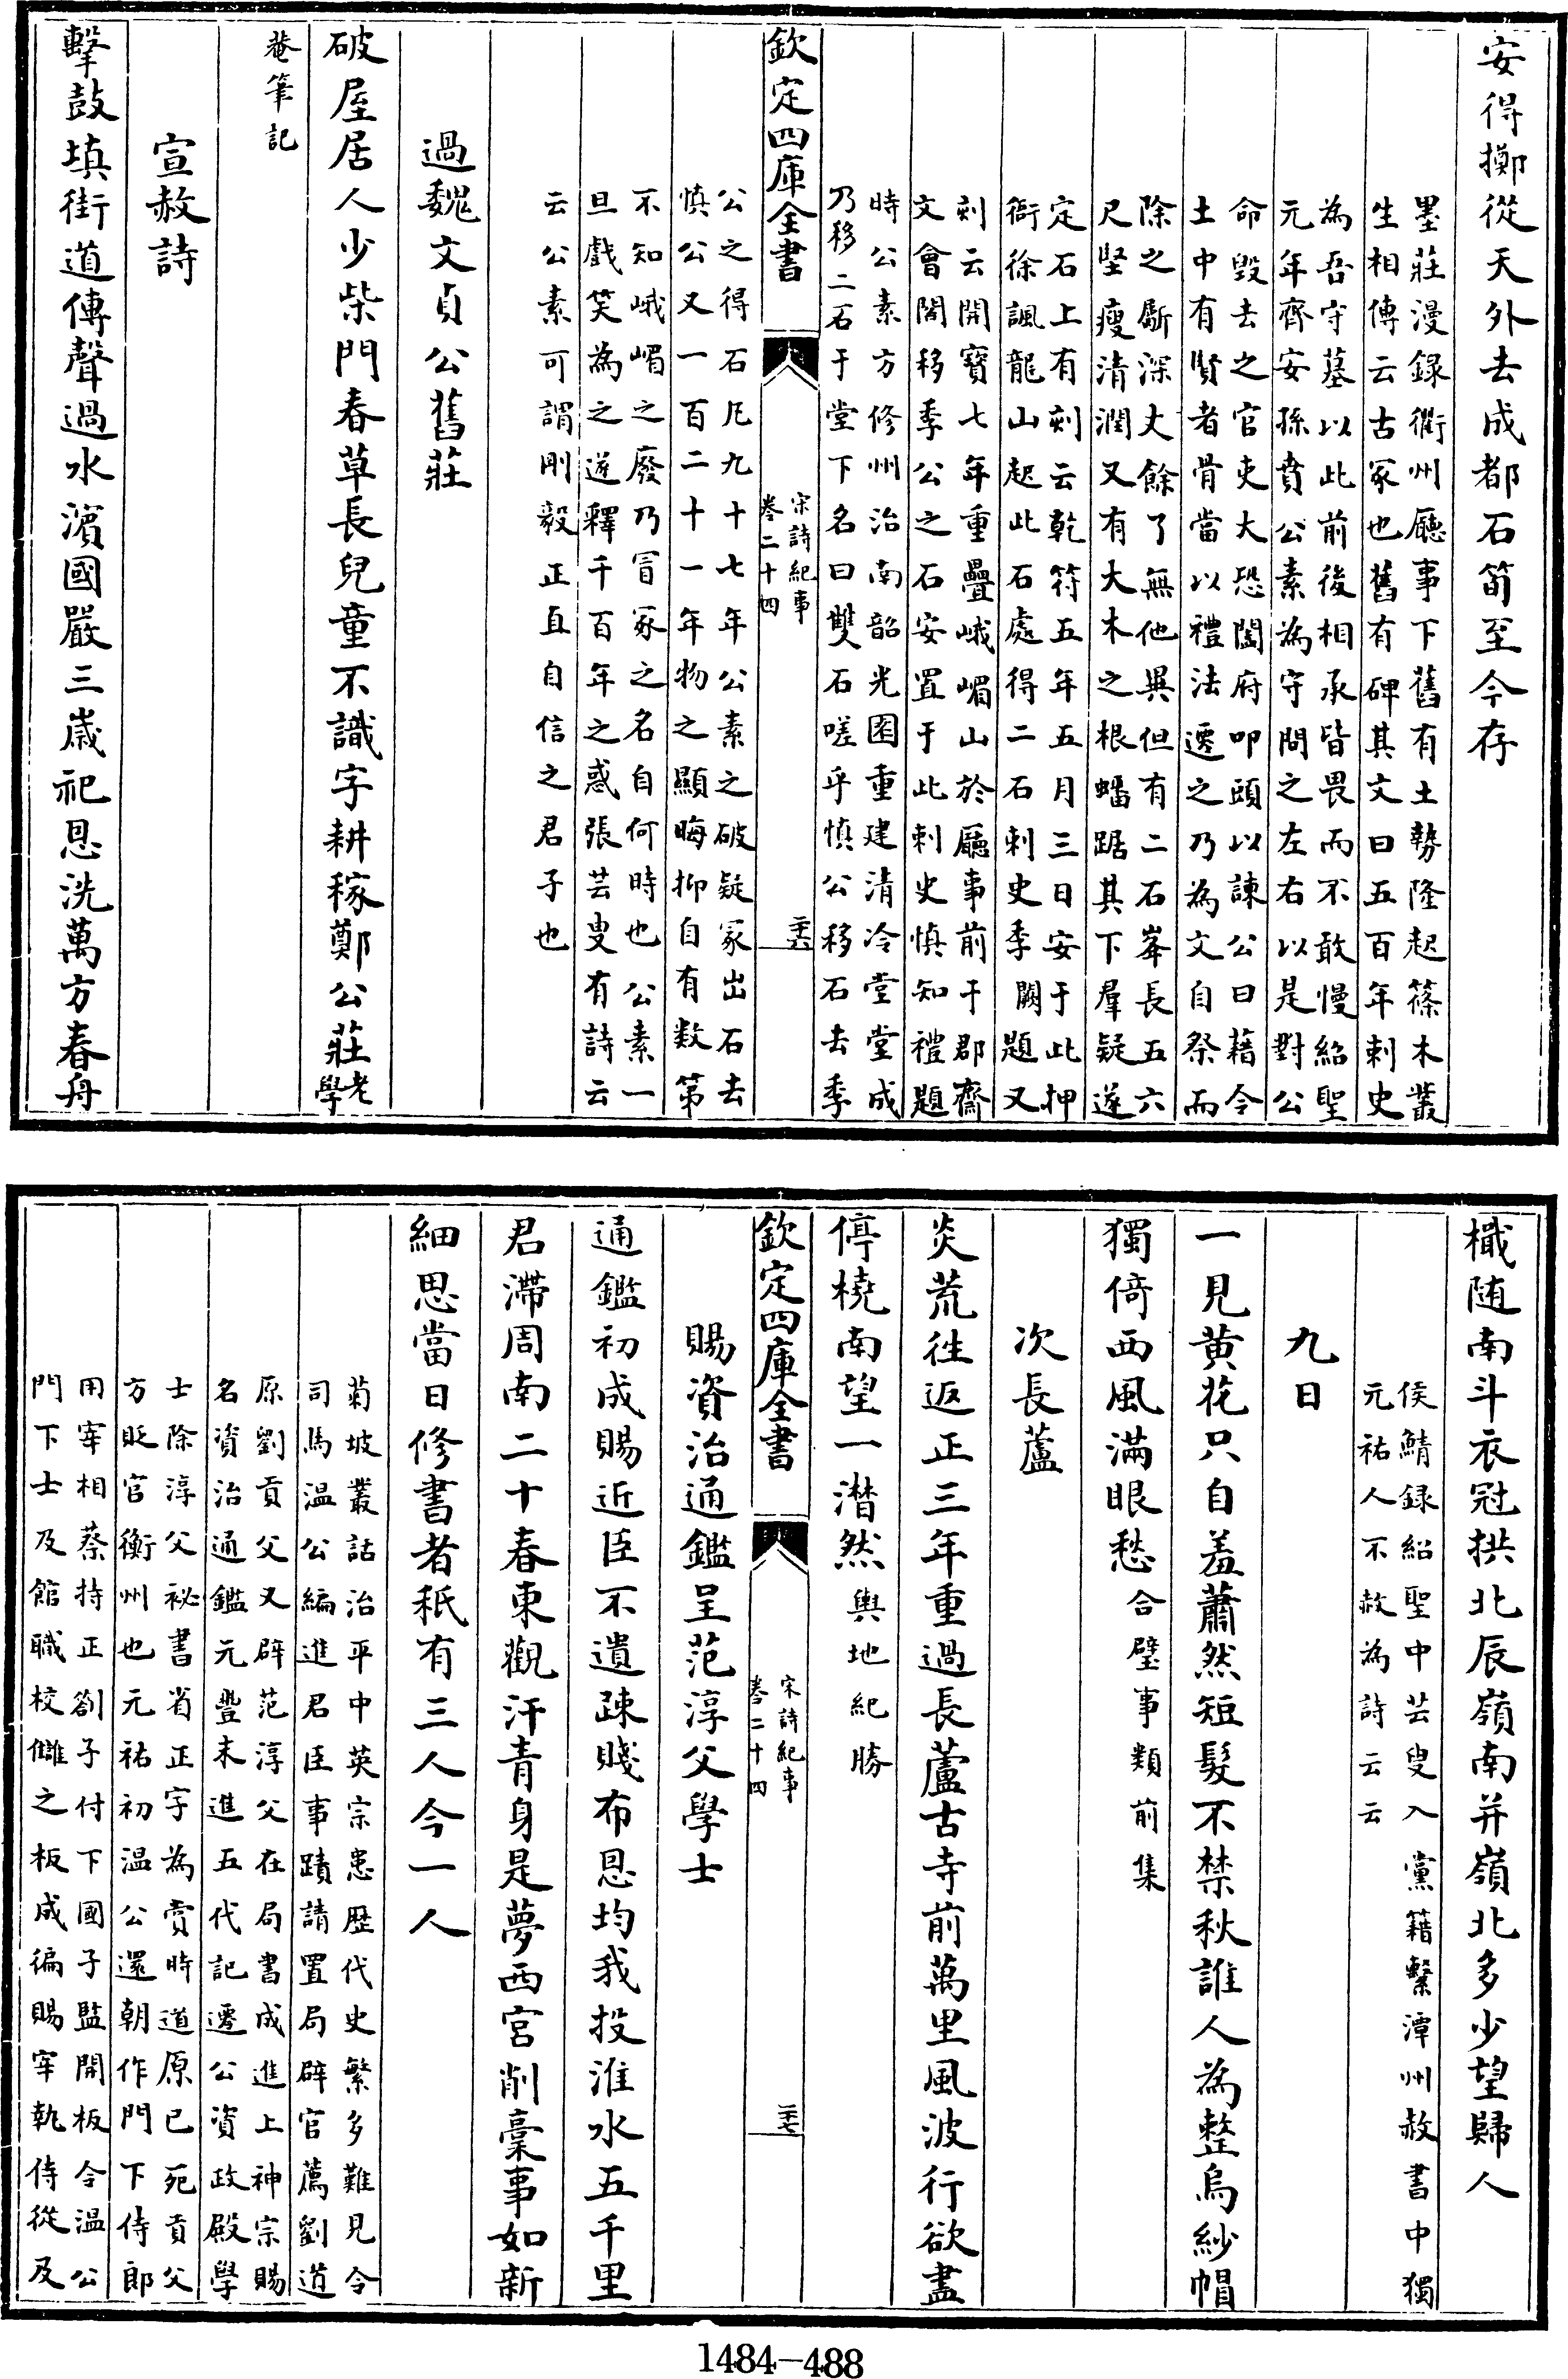 安得擲從天外去成都石筍至今存
墨莊漫録衢州廳事下舊有土勢隆起篠木叢
生相傳云古冢也舊有碑其文曰五百年刺史
為吾守墓以此前後相承皆畏而不敢慢紹聖
元年齊安孫賁公素為守問之左右以是對公
命毀去之官吏大恐闔府叩頭以諫公曰藉令
土中有賢者骨當以禮法遷之乃為文自祭而
除之斸深丈餘了無他異但有二石峯長五六
尺堅瘦清潤又有大木之根蟠踞其下羣疑遂
定石上有刻云乾符五年五月三日安于此押
衙徐諷龍山起此石處得二石刺史季闕題又
刻云開寶七年重疊峨嵋山於廳事前于郡齋
文會閣移季公之石安置于此刺史慎知禮題
時公素方修州治南韶光園重建清冷堂堂成
乃移二石于堂下名曰雙石嗟乎慎公移石去季
欽定四庫全書
宋詩紀事
卷二十四
三十六
公之得石凡九十七年公素之破疑冢出石去
慎公又一百二十一年物之顯晦抑自有数第
不知峨嵋之廢乃冒冢之名自何時也公素一
旦戲笑為之遂釋千百年之惑張芸叟有詩云
云公素可謂剛毅正直自信之君子也
過魏文貞公舊莊
破屋居人少柴門春草長兒童不識字耕稼鄭公莊老學
菴筆記
宣赦詩
擊鼓填街道傳聲過水濱國嚴三歳祀恩洗萬方春舟
檝随南斗衣冠拱北辰嶺南并嶺北多少望歸人
侯鯖録紹聖中芸叟入黨籍繫潭州赦書中獨
元祐人不赦為詩云云
九日
一見黄花只自羞蕭然短髮不禁秋誰人為整烏紗帽
獨倚西風滿眼愁合璧事類前集
次長蘆
炎荒徃返正三年重過長蘆古寺前萬里風波行欲盡
停橈南望一潸然輿地紀勝
欽定四庫全書
宋詩紀事
卷二十四
三十七
賜資治通鑑呈范淳父學士
通鑑初成賜近臣不遺疎賤布恩均我投淮水五千里
君滯周南二十春東觀汗青身是夢西宮削稾事如新
細思當日修書者秖有三人今一人
菊坡叢話治平中英宗患歴代史繁多難見令
司馬温公編進君臣事蹟請置局辟官薦劉道
原劉貢父又辟范淳父在局書成進上神宗賜
名資治通鑑元豐末進五代記遷公資政殿學
士除淳父祕書省正字為賞時道原已死貢父
方貶官衡州也元祐初温公還朝作門下侍郎
用宰相蔡持正劄子付下國子監開板令温公
門下士及館職校讎之板成徧賜宰執侍從及
1484-488